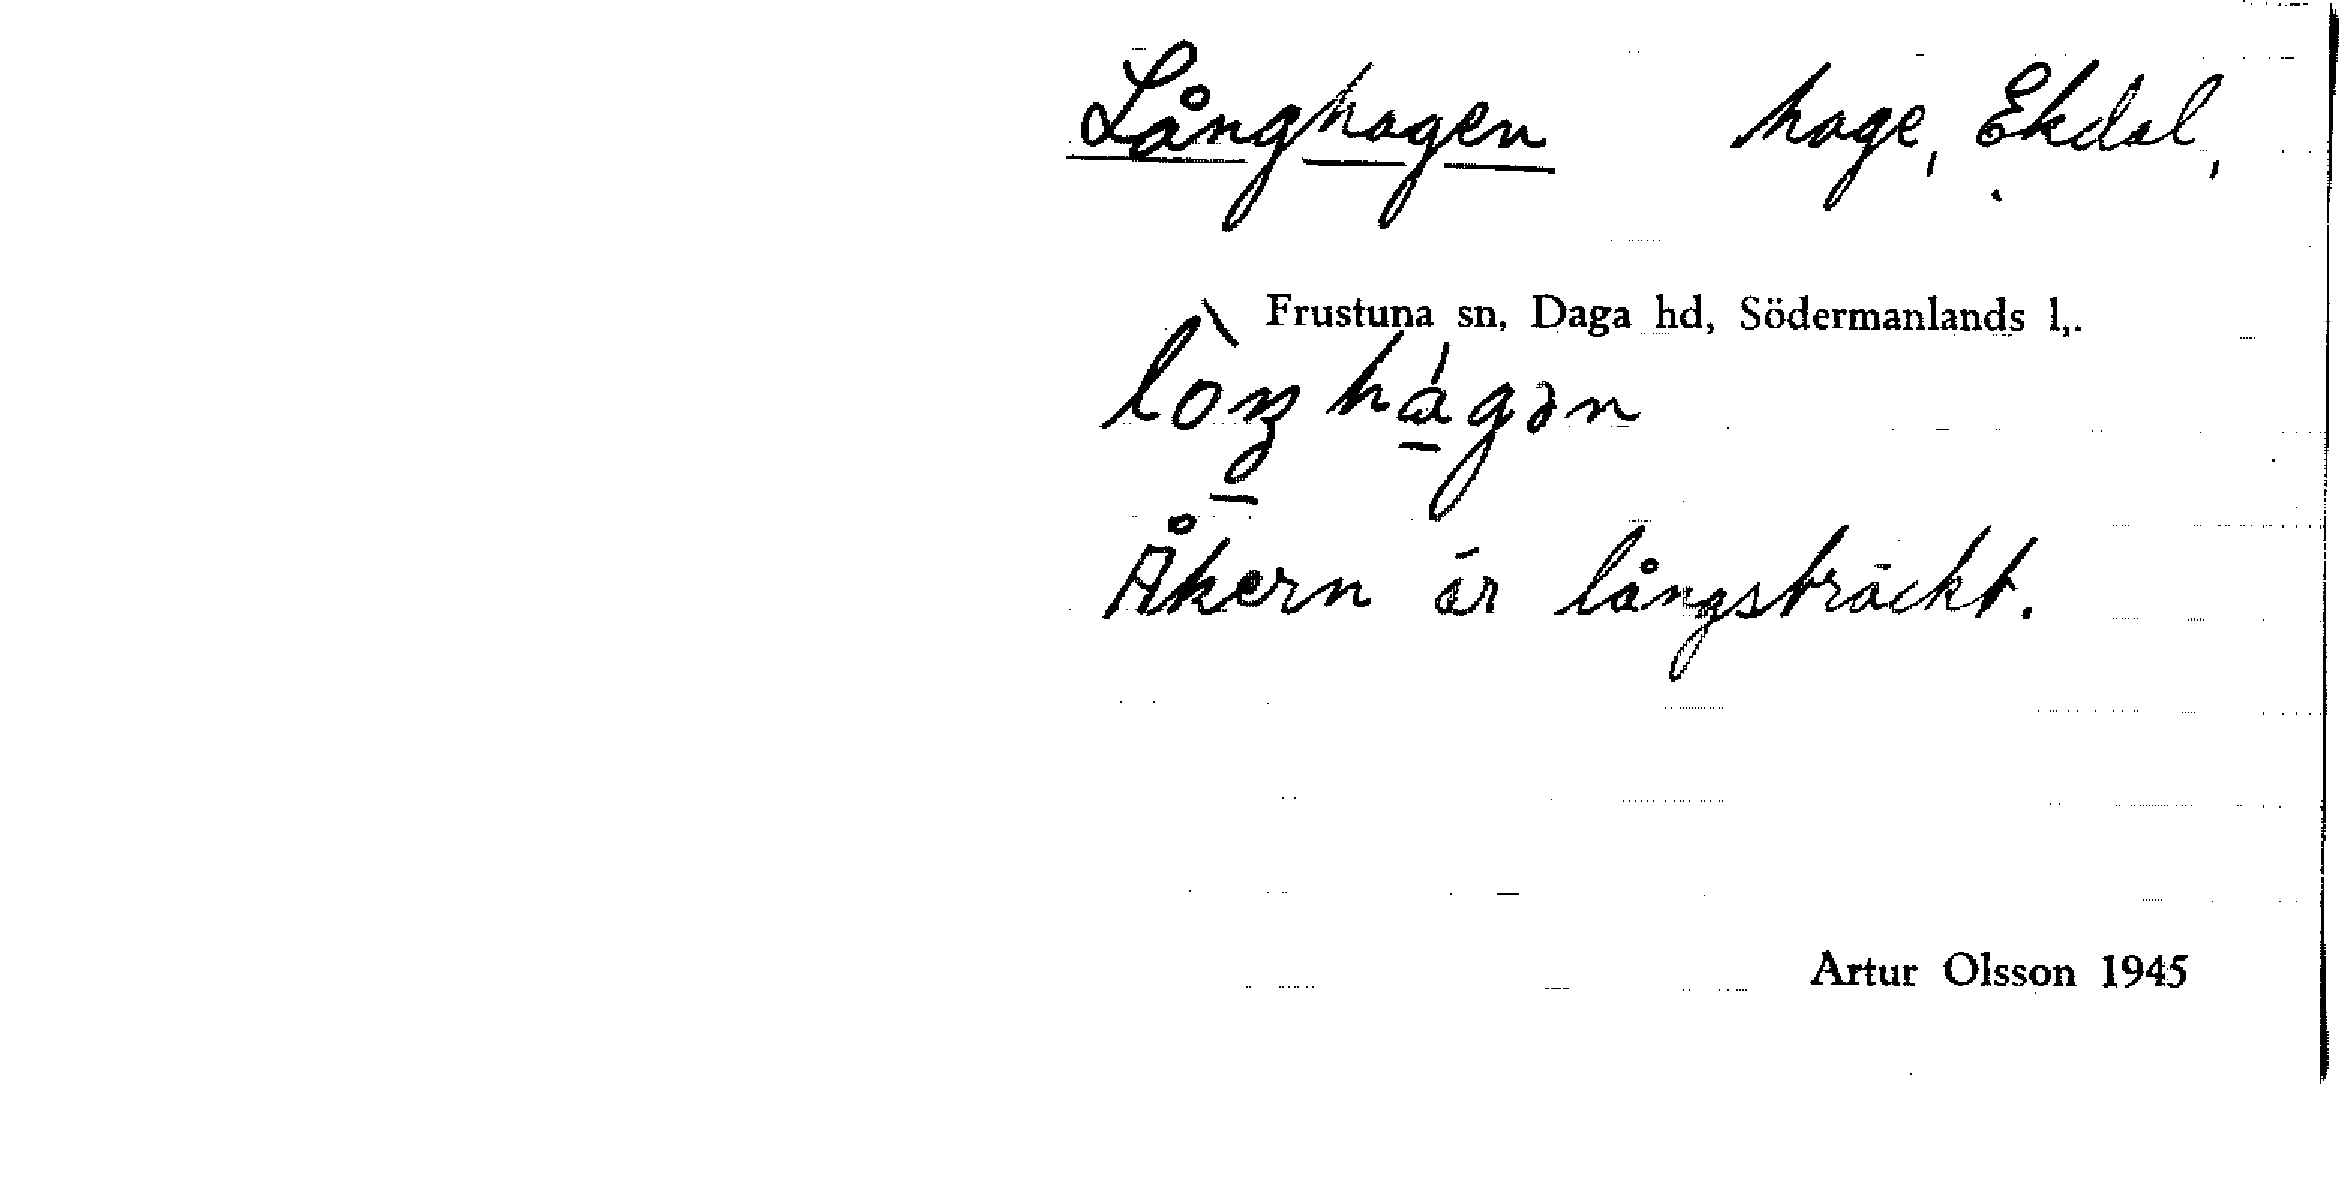 Långhagen hage, Ekdal,
Frustuna sn, Daga hd, Södermanlands l,.
lòŋhágən
Åkern är långsträckt.
Artur Olsson 1945